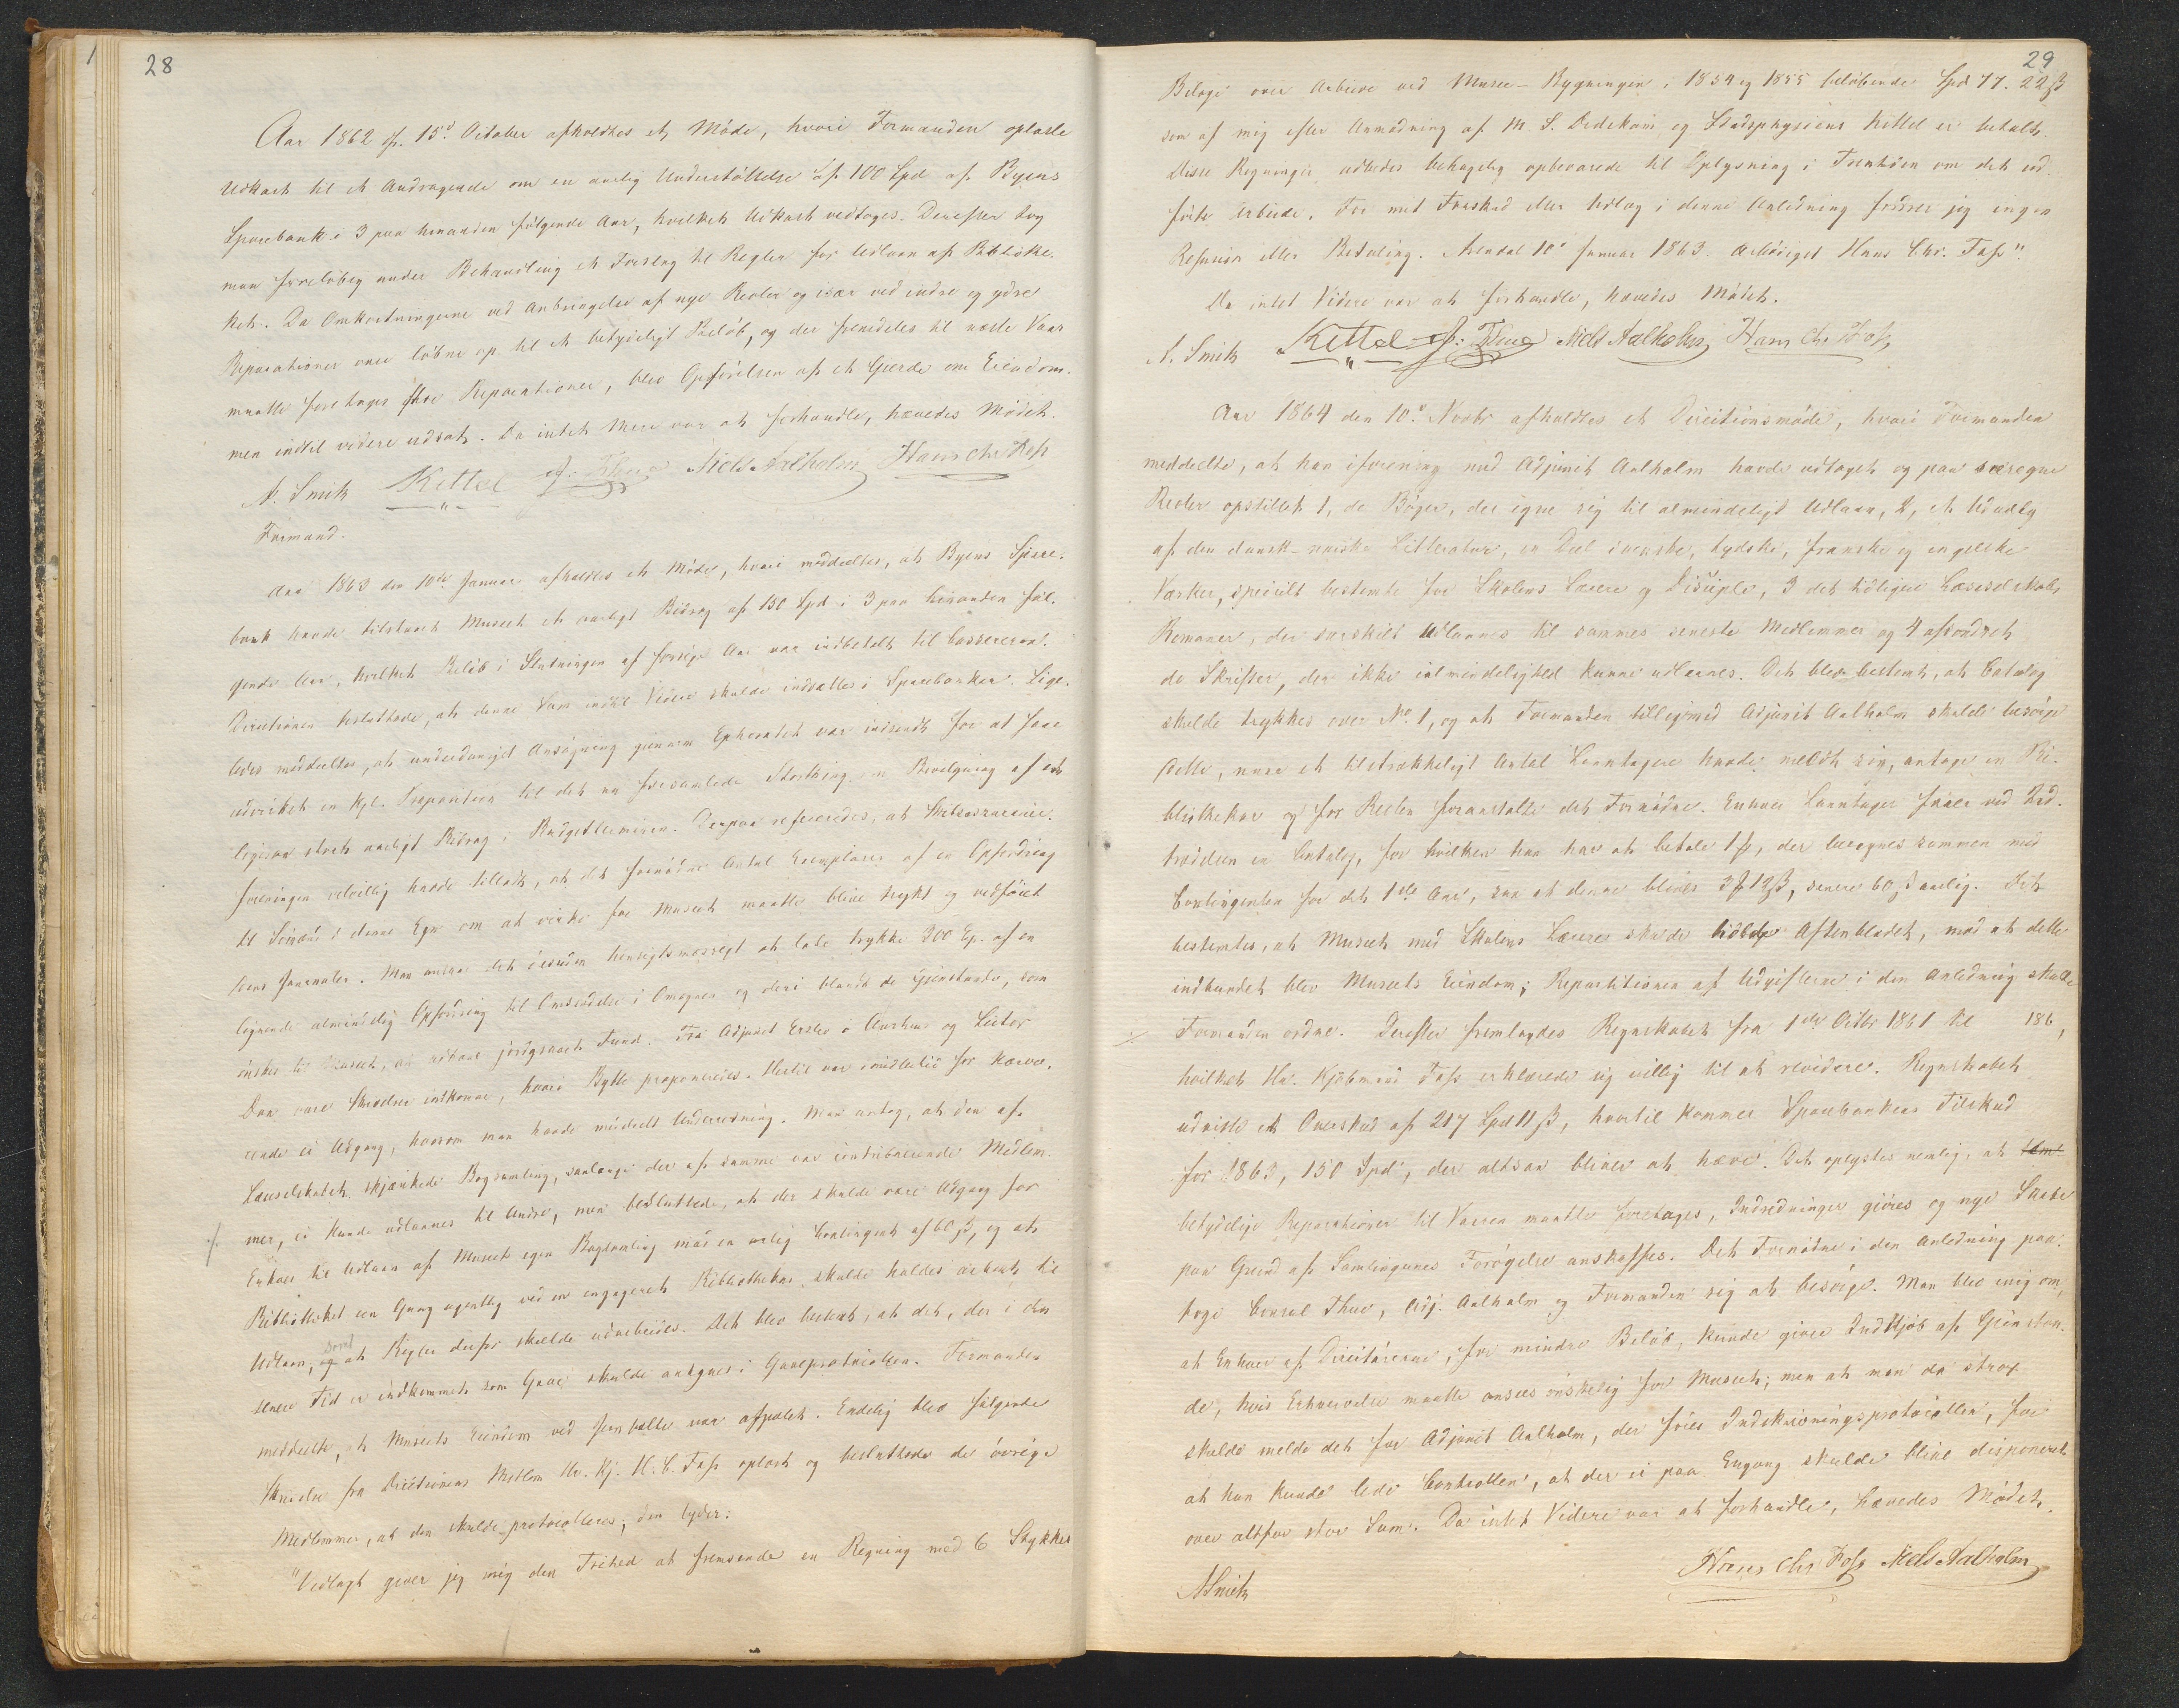 28
Aar 1862 d. 15de October afholdtes et Møde, hvori Formanden oplæste
Udkast til et Andragende om en aarlig Understøttelse af 100 Spd af Byens
Sparebank i 3 paa hinanden følgende Aar, hvilket Udkast vedtoges. Derefter tog
man foreløbig under Behandling et Forslag til Regler for Udlaan af Bibliothe-
ket. Da Omkostningerne ved Anbringelse af nye Reoler og især ved indre og ydre
Reparationer vare løbne op til et betydeligt Beløb, og der fremdeles til næste Vaar
maatte foretages flere Reparationer, blev Opførelsen af et Gjerde om Eiendom-
men indtil videre udsat. Da intet Mere var at forhandle, hævedes Mødet.
A. Smith Kittel A: Thue Niels Aalholm Hans Chr Foss
Formand.
Aar 1863 den 10de Januar afholdtes et Møde, hvori meddeeltes, at Byens Spare-
bank havde tilstaaet Museet et aarligt Bidrag af 150 Spd i 3 paa hinanden føl-
gende Aar, hvilket Beløb i Slutningen af forrige Aar var indbetalt til Cassereren.
Directionen besluttede, at denne Sum indtil Videre skulde indsættes i Sparebanken. Lige-
ledes meddeeltes, at underdanigst Ansøgning gjennem Ephoratet var indsendt for at faae
udvirket en kgl. Proposition til det nu forsamlede Storthing om Bevilgning af et
ligesaa stort aarligt Bidrag i Budgetterminen. Derpaa refereredes, at Skibsassurance-
foreningen velvillig havde tilladt, at det fornødne Antal Exemplarer af en Opfordring
til Sømænd i denne Egn om at virke for Museet maatte blive trykt og vedføiet
deres Journaler. Man ansaa det desuden hensigtsmæssigt at lade trykke 300 Ex. af en
lignende almindelig Opfordring til Omsendelse i Omegnen og deri blandt de Gjenstande, som
ønskes til Museet, at udbede jordgravet Fund. Fra Adjunct Erslev i Aarhus og Lector
Daa vare Skrivelser indkomne, hvori Bytte proponeredes. Hertil var imidlertid for Nærvæ-
rende ei Adgang, hvorom man havde meddeelt Underretning. Man antog, at den af
Læseselskabet skjænkede Bogsamling, saalænge der af samme var contribuerende Medlem-
mer, ei kunde udlaanes til Andre, men besluttede, at der skulde være Adgang for
./. Enhver til Udlaan af Museets egen Bogsamling mod en aarlig Contingent af 60 ß, og at
Bibliotheket een Gang ugentlig ved en engageret Bibliothekar skulde holdes aabent til
Udlaan, og samt at Regler derfor skulde udarbeides. Det blev bestemt, at det, der i den
senere Tid er indkommet som Gave skulde antegnes i Gaveprotocollen. Formanden
meddeelte, at Museets Eiendom ved Jernbolte var afpælet. Endelig blev følgende
Skrivelse fra Directionens Medlem Hr. Kj. H. C. Foss oplæst og besluttede de øvrige
Medlemmer, at den skulde protocolleres; den lyder:
"Vedlagt giver jeg mig den Frihed at fremsende en Regning med 6 Stykker
29
Bilage over Arbeide ved Musee-Bygningen i 1854 og 1855 beløbende Spd 77. 22 ß
som af mig efter Anmodning af M. S. Dedekam og Stadsphysicus Kittel er betalt.
Disse Regninger udbedes behagelig opbevarede til Oplysning i Fremtiden om det ud-
førte Arbeide. For mit Forskud eller Udlæg i denne Anledning fordrer jeg ingen
Refusion eller Betaling. Arendal 10de Januar 1863. Ærbødigst Hans Chr. Foss".
Da intet Videre var at forhandle, hævedes Mødet.
A. Smith Kittel A: Thue Niels Aalholm Hans Chr Foss
Aar 1864 den 10de Novbr afholdtes et Directionsmøde, hvori Formanden
meddeelte, at han iforening med Adjunct Aalholm havde udtaget og paa særegne
Reoler opstillet 1, de Bøger, der egne sig til almindeligt Udlaan, 2, et Udvalg
af den dansk-norske Litteratur, en Deel svenske, tydske, franske og engelske
Værker, specielt bestemte for Skolens Lærere og Disciple, 3 det tidligere Læseselskabs
Romaner, der særskilt udlaanes til sammes seneste Medlemmer og 4 afsondret
de Skrifter, der ikke i almindelighed kunne udlaanes. Det blev bestemt, at Catalog
skulde trykkes over No. 1, og at Formanden tilligemed Adjunct Aalholm skulde besørge
dette, naar et tilstrækkeligt Antal Laantagere havde meldt sig, antage en Bi-
bliothekar og for Resten foranstalte det Fornødne. Enhver Laantager faaer ved Ind-
trædelsen en Catalog, for hvilken han har at betale 1 ƒ, der beregnes sammen med
Contingenten for det 1ste Aar, saa at denne bliver 3 ƒ 12 ß, senere 60 ß aarlig. Det
bestemtes, at Museet med Skolens Lærere skulde holde Aftenbladet, mod at dette
indbundet blev Museets Eiendom; Repartitionen af Udgifterne i den Anledning skulde
./. Formanden ordne. Derefter fremlagdes Regnskabet fra 1ste Octbr 1861 til 186 ,
hvilket Hr. Kjøbmand Foss erklærede sig villig til at revidere. Regnskabet
udviste et Overskud af 217 Spd 11 ß, hvortil kommer Sparebankens Tilskud
for 1863, 150 Spd, der altsaa bliver at hæve. Det oplystes nemlig, at
betydelige Reparationer til Vaaren maatte foretages, Indredninger gjøres og nye Skabe
paa Grund af Samlingernes Forøgelse anskaffes. Det Fornødne i den Anledning paa-
toge Consul Thue, Adj. Aalholm og Formanden sig at besørge. Man blev enig om,
at Enhver af Directørerne, for mindre Beløb, kunde giøre Indkjøb af Gjenstan-
de, hvis Erhvervelse maatte ansees ønskelig for Museet; men at man da strax
skulde melde det for Adjunct Aalholm, der fører Indskrivningsprotocollen, for
at han kunde lede Controllen, at der ei paa Engang skulde blive disponeret
over altfor stor Sum. Da intet Videre var at forhandle, hævedes Mødet.
ASmith Hans Chr Foss Niels Aalholm